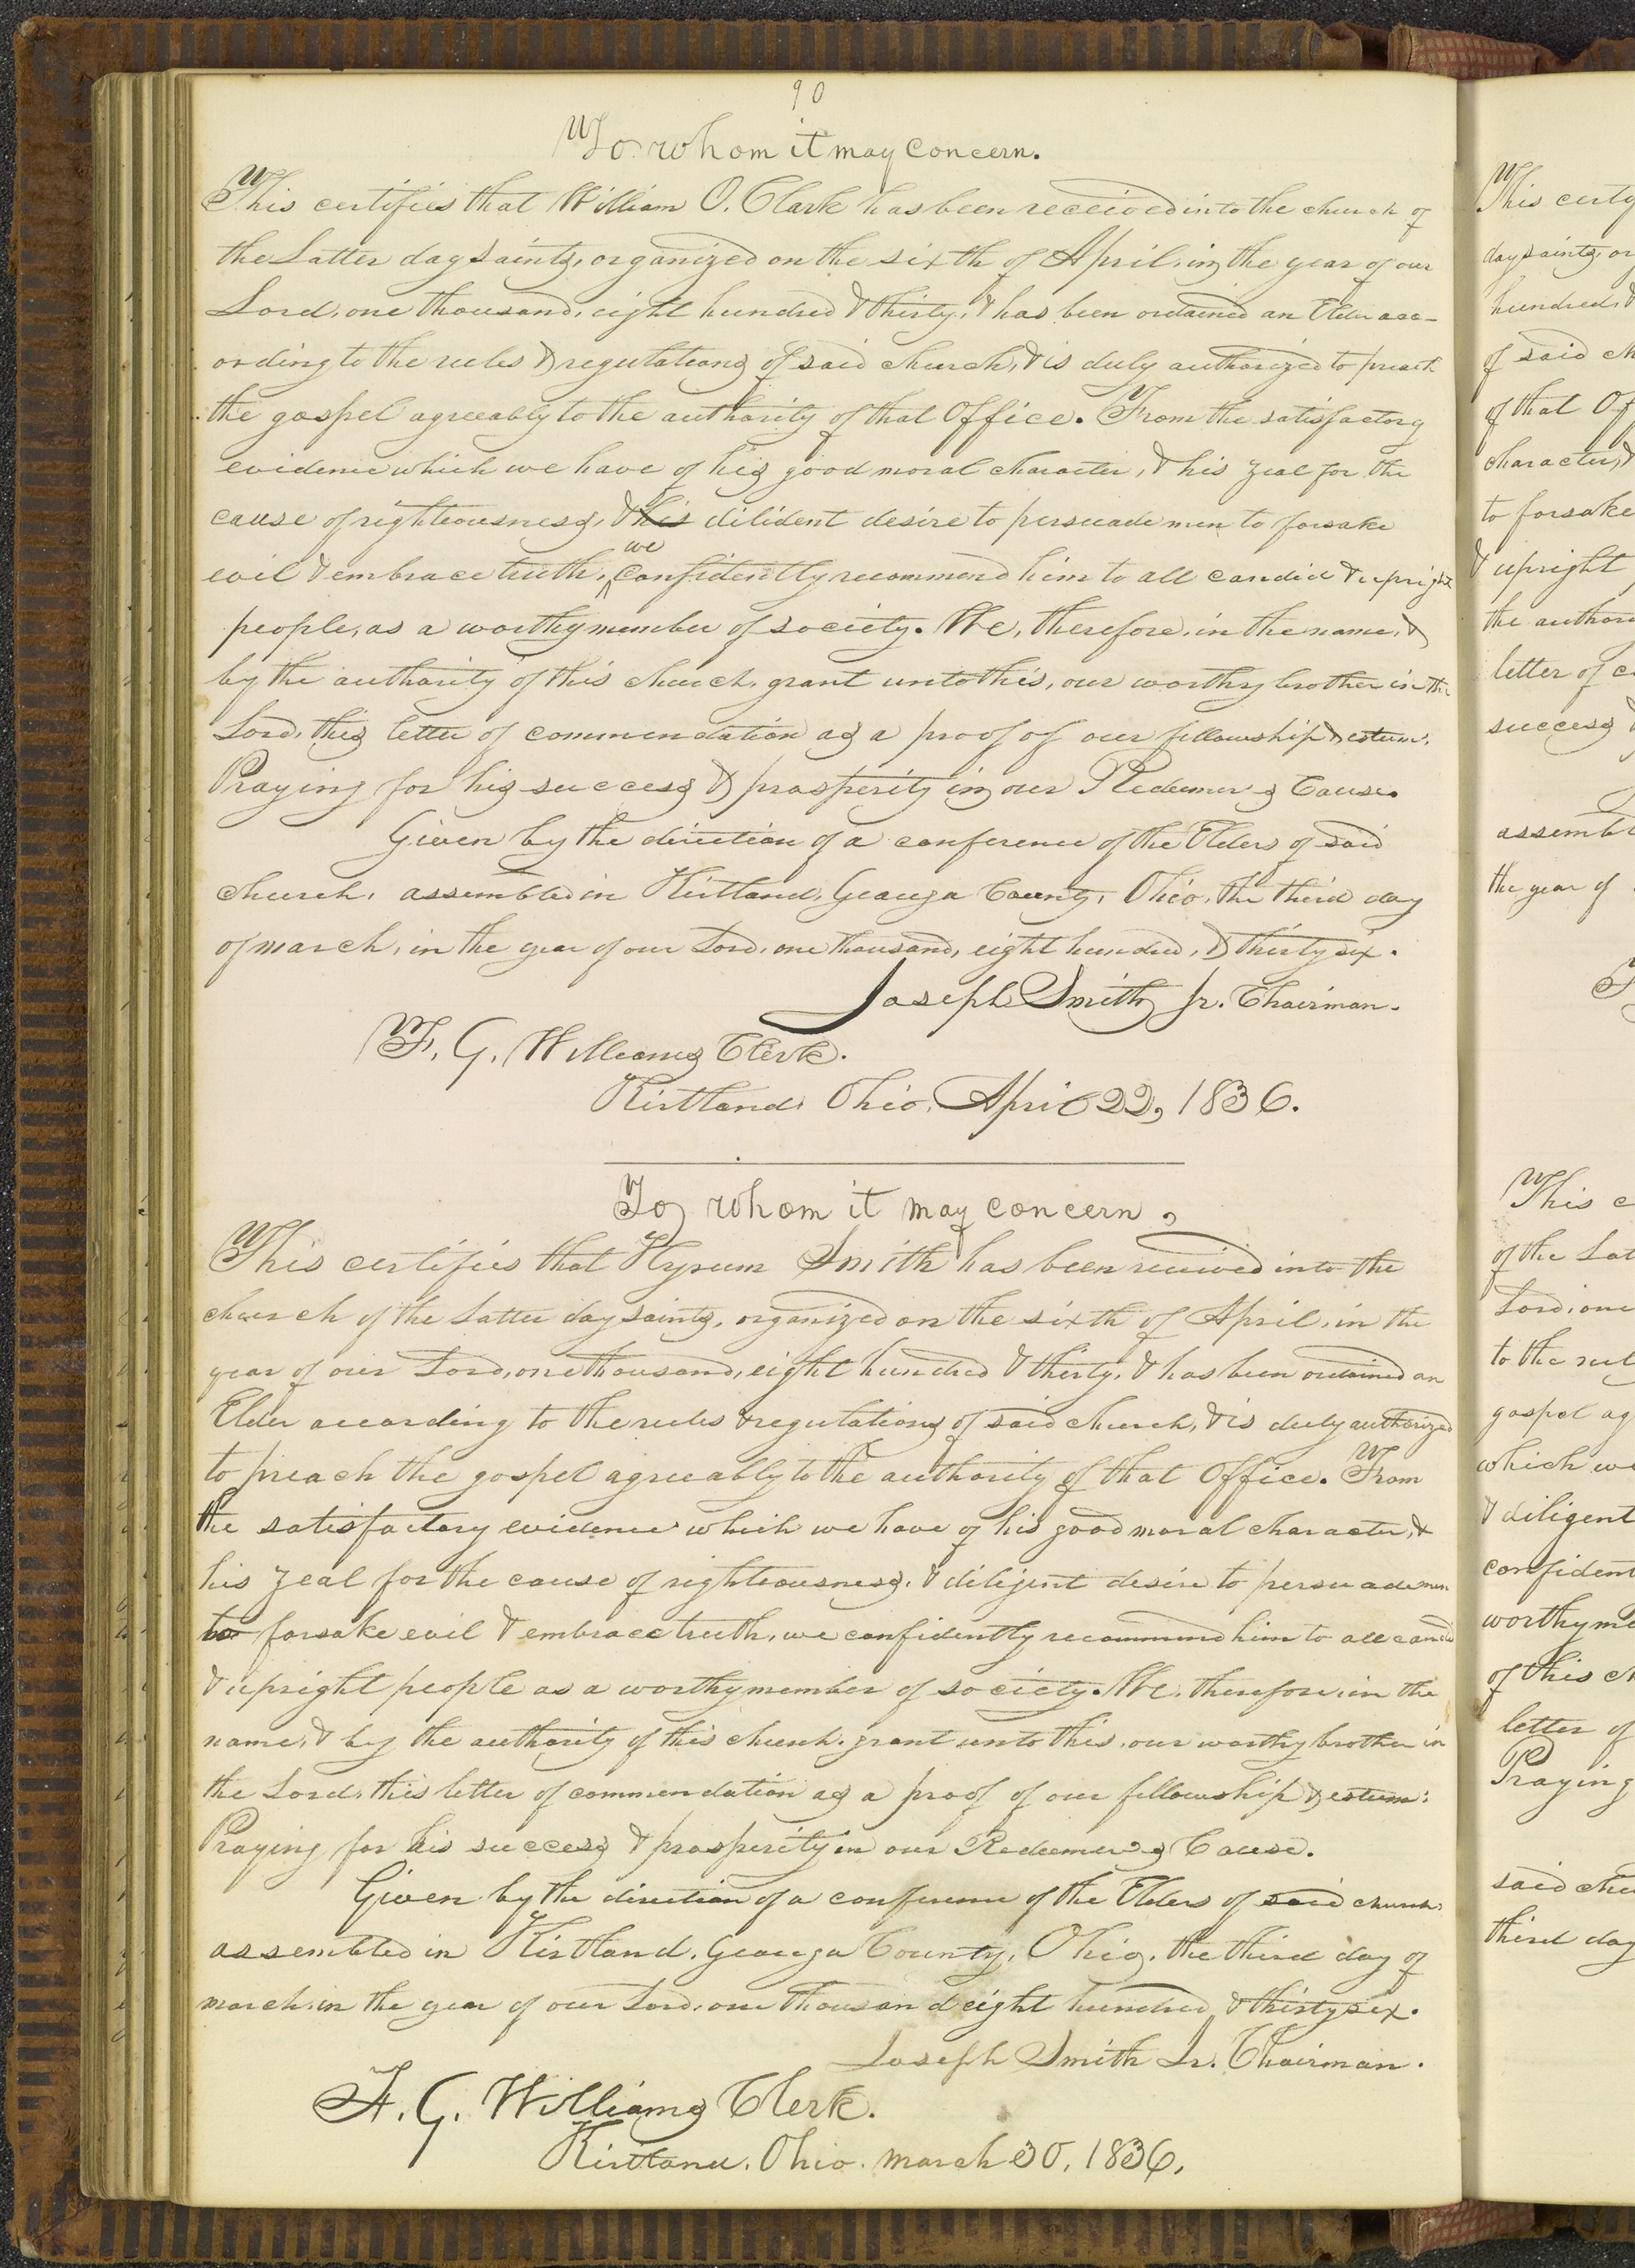 90
To whom it may concern.
This certifies that William O. Clark has been received into the church of
the Latter day saints, organized on the sixth of April, in the year of our
Lord, one thousand, eight hundred & thirty, & has been ordained an Elder acc-
ording to the rules & regulations of said church, & is duly authorized to preach
the gospel agreeably to the authority of that Office. From the satisfactory
evidence which we have of his good moral character, & his zeal for the
cause of righteousness, & his dilident desire to persuade men to forsake
evil & embrace truth, we confidently recommend him to all candid & upright
people, as a worthy member of society. We, therefore, in the name, &
by the authority of this church, grant unto this, our worthy brother in the
Lord, this letter of commendation as a proof of our fellowship & esteem:
Praying for his success & prosperity in our Redeemer's Cause.
Given by the direction of a conference of the Elders of said
church, assembled in Kirtland, Geauga County, Ohio, the third day
of march, in the year of our Lord, one thousand, eight hundred, & thirty six.
Joseph Smith Jr. Chairman.
F. G. Williams Clerk.
Kirtland, Ohio, April 22, 1836.
To whom it may concern,
This certifies that Hyrum Smith has been received into the
church of the Latter day saints, organized on the sixth of April, in the
year of our Lord, one thousand, eight hundred & thirty, & has been ordained an
Elder according to the rules & regulations of said church, & is duly authorized
to preach the gospel agreeably to the authority of that Office. From
the satisfactory evidence which we have of his good moral character, &
his zeal for the cause of righteousness, & diligent desire to persuade men
to forsake evil & embrace truth, we confidently recommend him to all candid
& upright people as a worthy member of society. We, therefore, in the
name, & by the authority of this church, grant unto this, our worthy brother in
the Lord, this letter of commendation as a proof of our fellowship & esteem:
Praying for his success & prosperity in our Redeemer's Cause.
Given by the direction of a conference of the Elders of said church,
assembled in Kirtland, Geauga County, Ohio, the third day of
march, in the year of our Lord, one thousand eight hundred & thirty six.
Joseph Smith Jr. Chairman.
F. G. Williams Clerk.
Kirtland, Ohio. march 30, 1836.
This
day saints, or
hundred, &
of said
of that
character, &
to forsake
& upright
the
letter of
success
the year of
This
of the
Lord, one
to the
gospel
which we
& diligent
confident
worthy
of this
letter of
Praying
said
third day